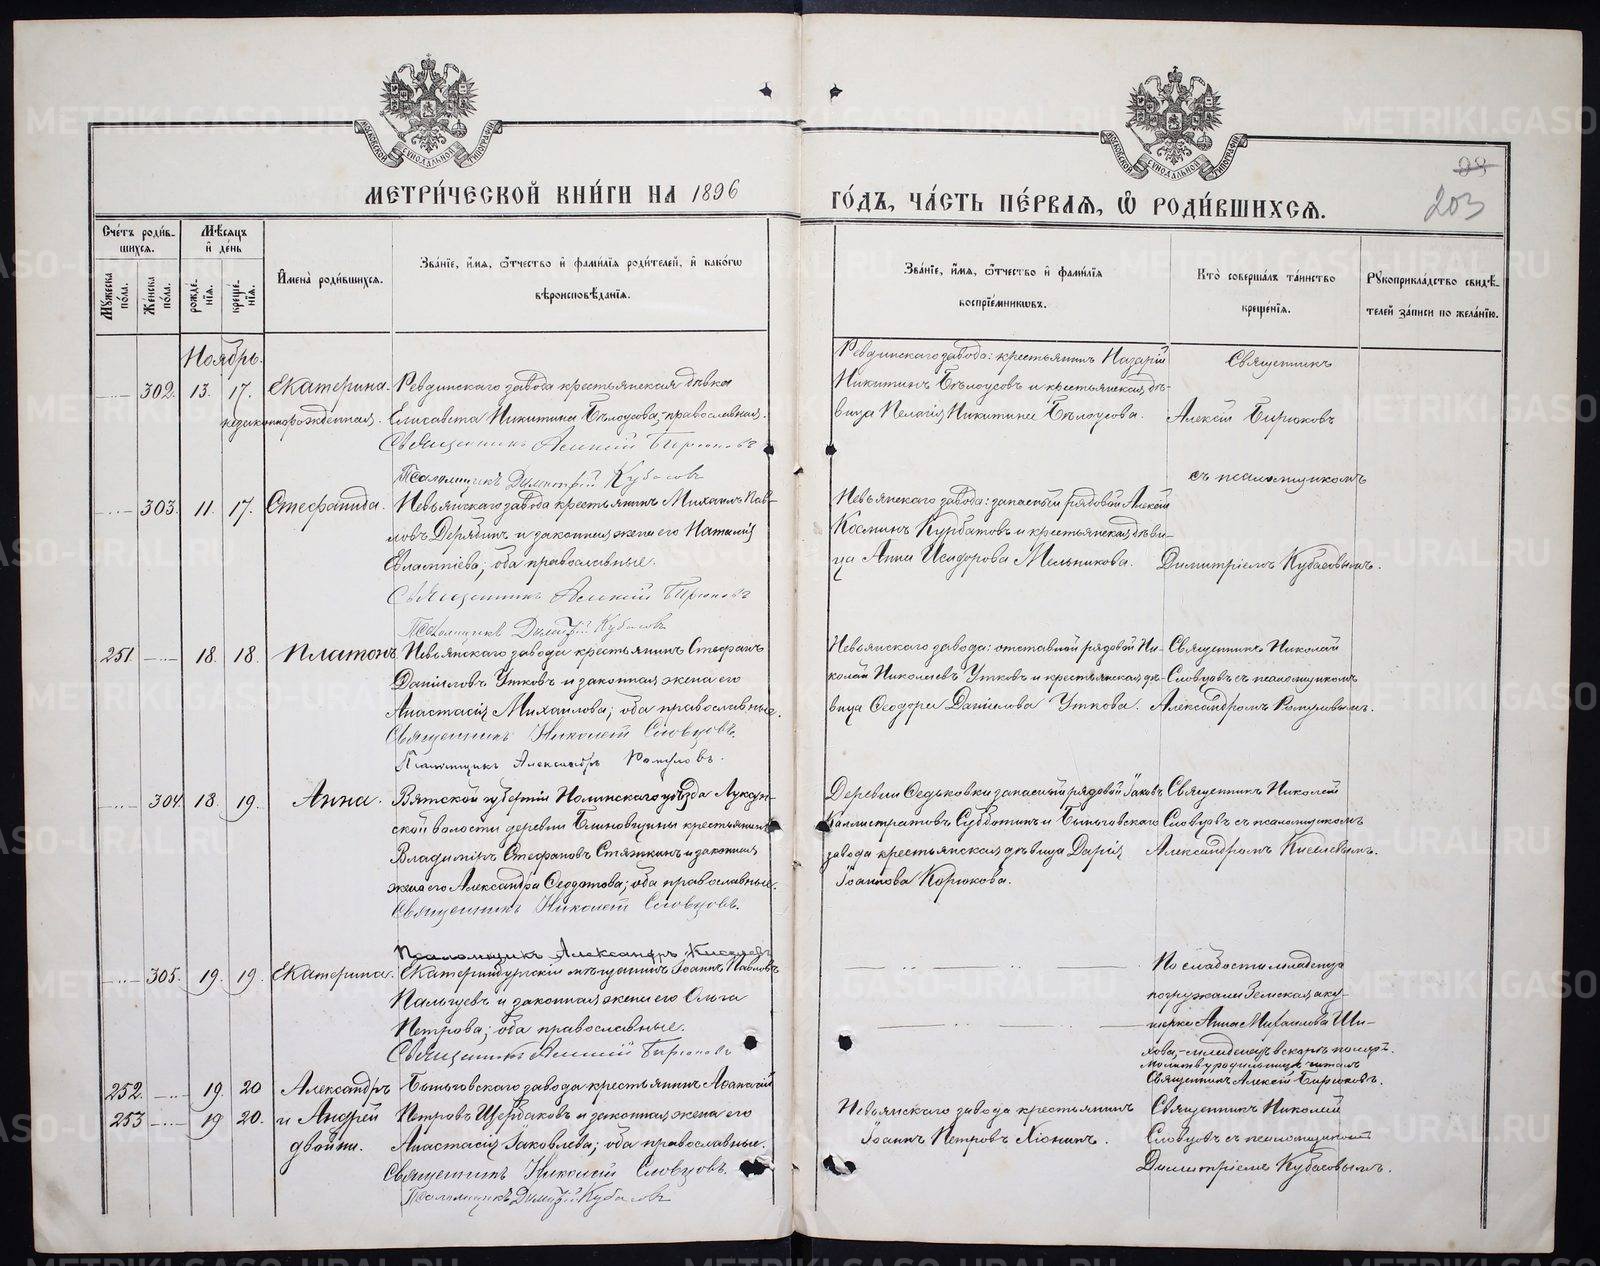 МОСКОВСКОЙ СѴНОДАЛЬНОЙ ТИПОГРАФІИ
МОСКОВСКОЙ СѴНОДАЛЬНОЙ ТИПОГРАФІИ
МЕТРИ́ЧЕСКОЙ КНИ́ГИ НА 1896
ГО́ДЪ, ЧА́СТЬ ПЕ́РВАЯ, Ѽ РОДИ́ВШИХСЯ.
203
Сче́тъ роди́в-
шихся.
Мѣ́сяцъ
и҆ де́нь
Мꙋ́жеска
по́ла.
Же́нска
по́ла.
рожде́-
нїя.
креще́-
нїя.
И҆мена̀ роди́вшихся.
Зва́нїе, и҆́мя, ѻ҆́тчество и҆ фами́лїя роди́телей, и҆ како́гѡ
вѣроисповѣ́данїя.
Зва́нїе, и҆́мя, ѻ҆́тчество и҆ фами́лїя
воспрїе́мникѡвъ.
Кто̀ соверша́лъ та́инство
креще́нїя.
Рꙋкоприкла́дство свидѣ́-
телей за́писи по жела́нїю.
Ноябрь.
302. 13. 17. Екатерина. незаконнорожденная.
Ревдинскаго завода крестьянская дѣвка
Елисавета Никитина Бѣлоусова, православная.
Священникъ Алексій Бирюковъ
Псаломщикъ Димитрій Кубасовъ
Ревдинскаго завода: крестьянинъ Назарій
Никитинъ Бѣлоусовъ и крестьянская дѣ-
вица Пелагія Никитина Бѣлоусова.
Священникъ
Алексій Бирюковъ
съ псаломщикомъ
Димитріемъ Кубасовымъ.
303. 11. 17. Стефанида.
Невьянскаго завода крестьянинъ Михаилъ Пав-
ловъ Дерябинъ и законная жена его Наталія
Евлампіева; оба православные.
Священникъ Алексій Бирюковъ
Псаломщикъ Димитрій Кубасовъ
Невьянскаго завода: запасный рядовой Алексій
Косминъ Курбатовъ и крестьянская дѣви-
ца Анна Исидорова Мельникова.
251. 18. 18. Платонъ.
Невьянскаго завода крестьянинъ Стефанъ
Даніиловъ Утковъ и законная жена его
Анастасія Михаилова; оба православные.
Священникъ Николай Словцовъ.
Псаломщикъ Александръ
Невьянскаго завода: отставной рядовой Ни-
колай Николаевъ Утковъ и крестьянская дѣ-
вица Ѳеодора Даніилова Уткова.
Священникъ Николай
Словцовъ съ псаломщикомъ
Александромъ
304. 18. 19. Анна.
Вятской губерніи Нолинскаго уѣзда
ской волости деревни Блиновщины крестьянинъ
Владиміръ Стефановъ Стяжкинъ и законная
жена его Александра Ѳеодотова; оба православные.
Священникъ Николай Словцовъ.
Псаломщикъ Александръ Киселевъ
Деревни Ѳедьковки запасный рядовой Іаковъ
Каллистратовъ Субботинъ и Быньговскаго
завода крестьянская дѣвица Дарія
Іоаннова Корюкова.
Священникъ Николай
Словцовъ съ псаломщикомъ
Александромъ Киселевымъ.
305. 19. 19. Екатерина.
Екатеринбургскій мѣщанинъ Іоаннъ Павловъ
Пальцевъ и законная жена его Ольга
Петрова; оба православные.
Священникъ Алексій Бирюковъ
По слабости младенца
погружала Земская аку-
шерка Анна Михаилова Ши-
хова,-младенецъ вскорѣ помёръ.
Молитву родильницѣ читалъ
Священникъ Алексій Бирюковъ.
252. 19. 20 Александръ
253 19 20. и Андрей
двойни.
Быньговскаго завода крестьянинъ Аѳанасій
Петровъ Щербаковъ и законная жена его
Анастасія Іаковлева; оба православные.
Священникъ Николай Словцовъ.
Псаломщикъ Димитрій Кубасовъ
Невьянскаго завода крестьянинъ
Іоаннъ Петровъ Хіонинъ.
Священникъ Николай
Словцовъ съ псаломщикомъ
Димитріемъ Кубасовымъ.
METRIKI.GASO-URAL.RU